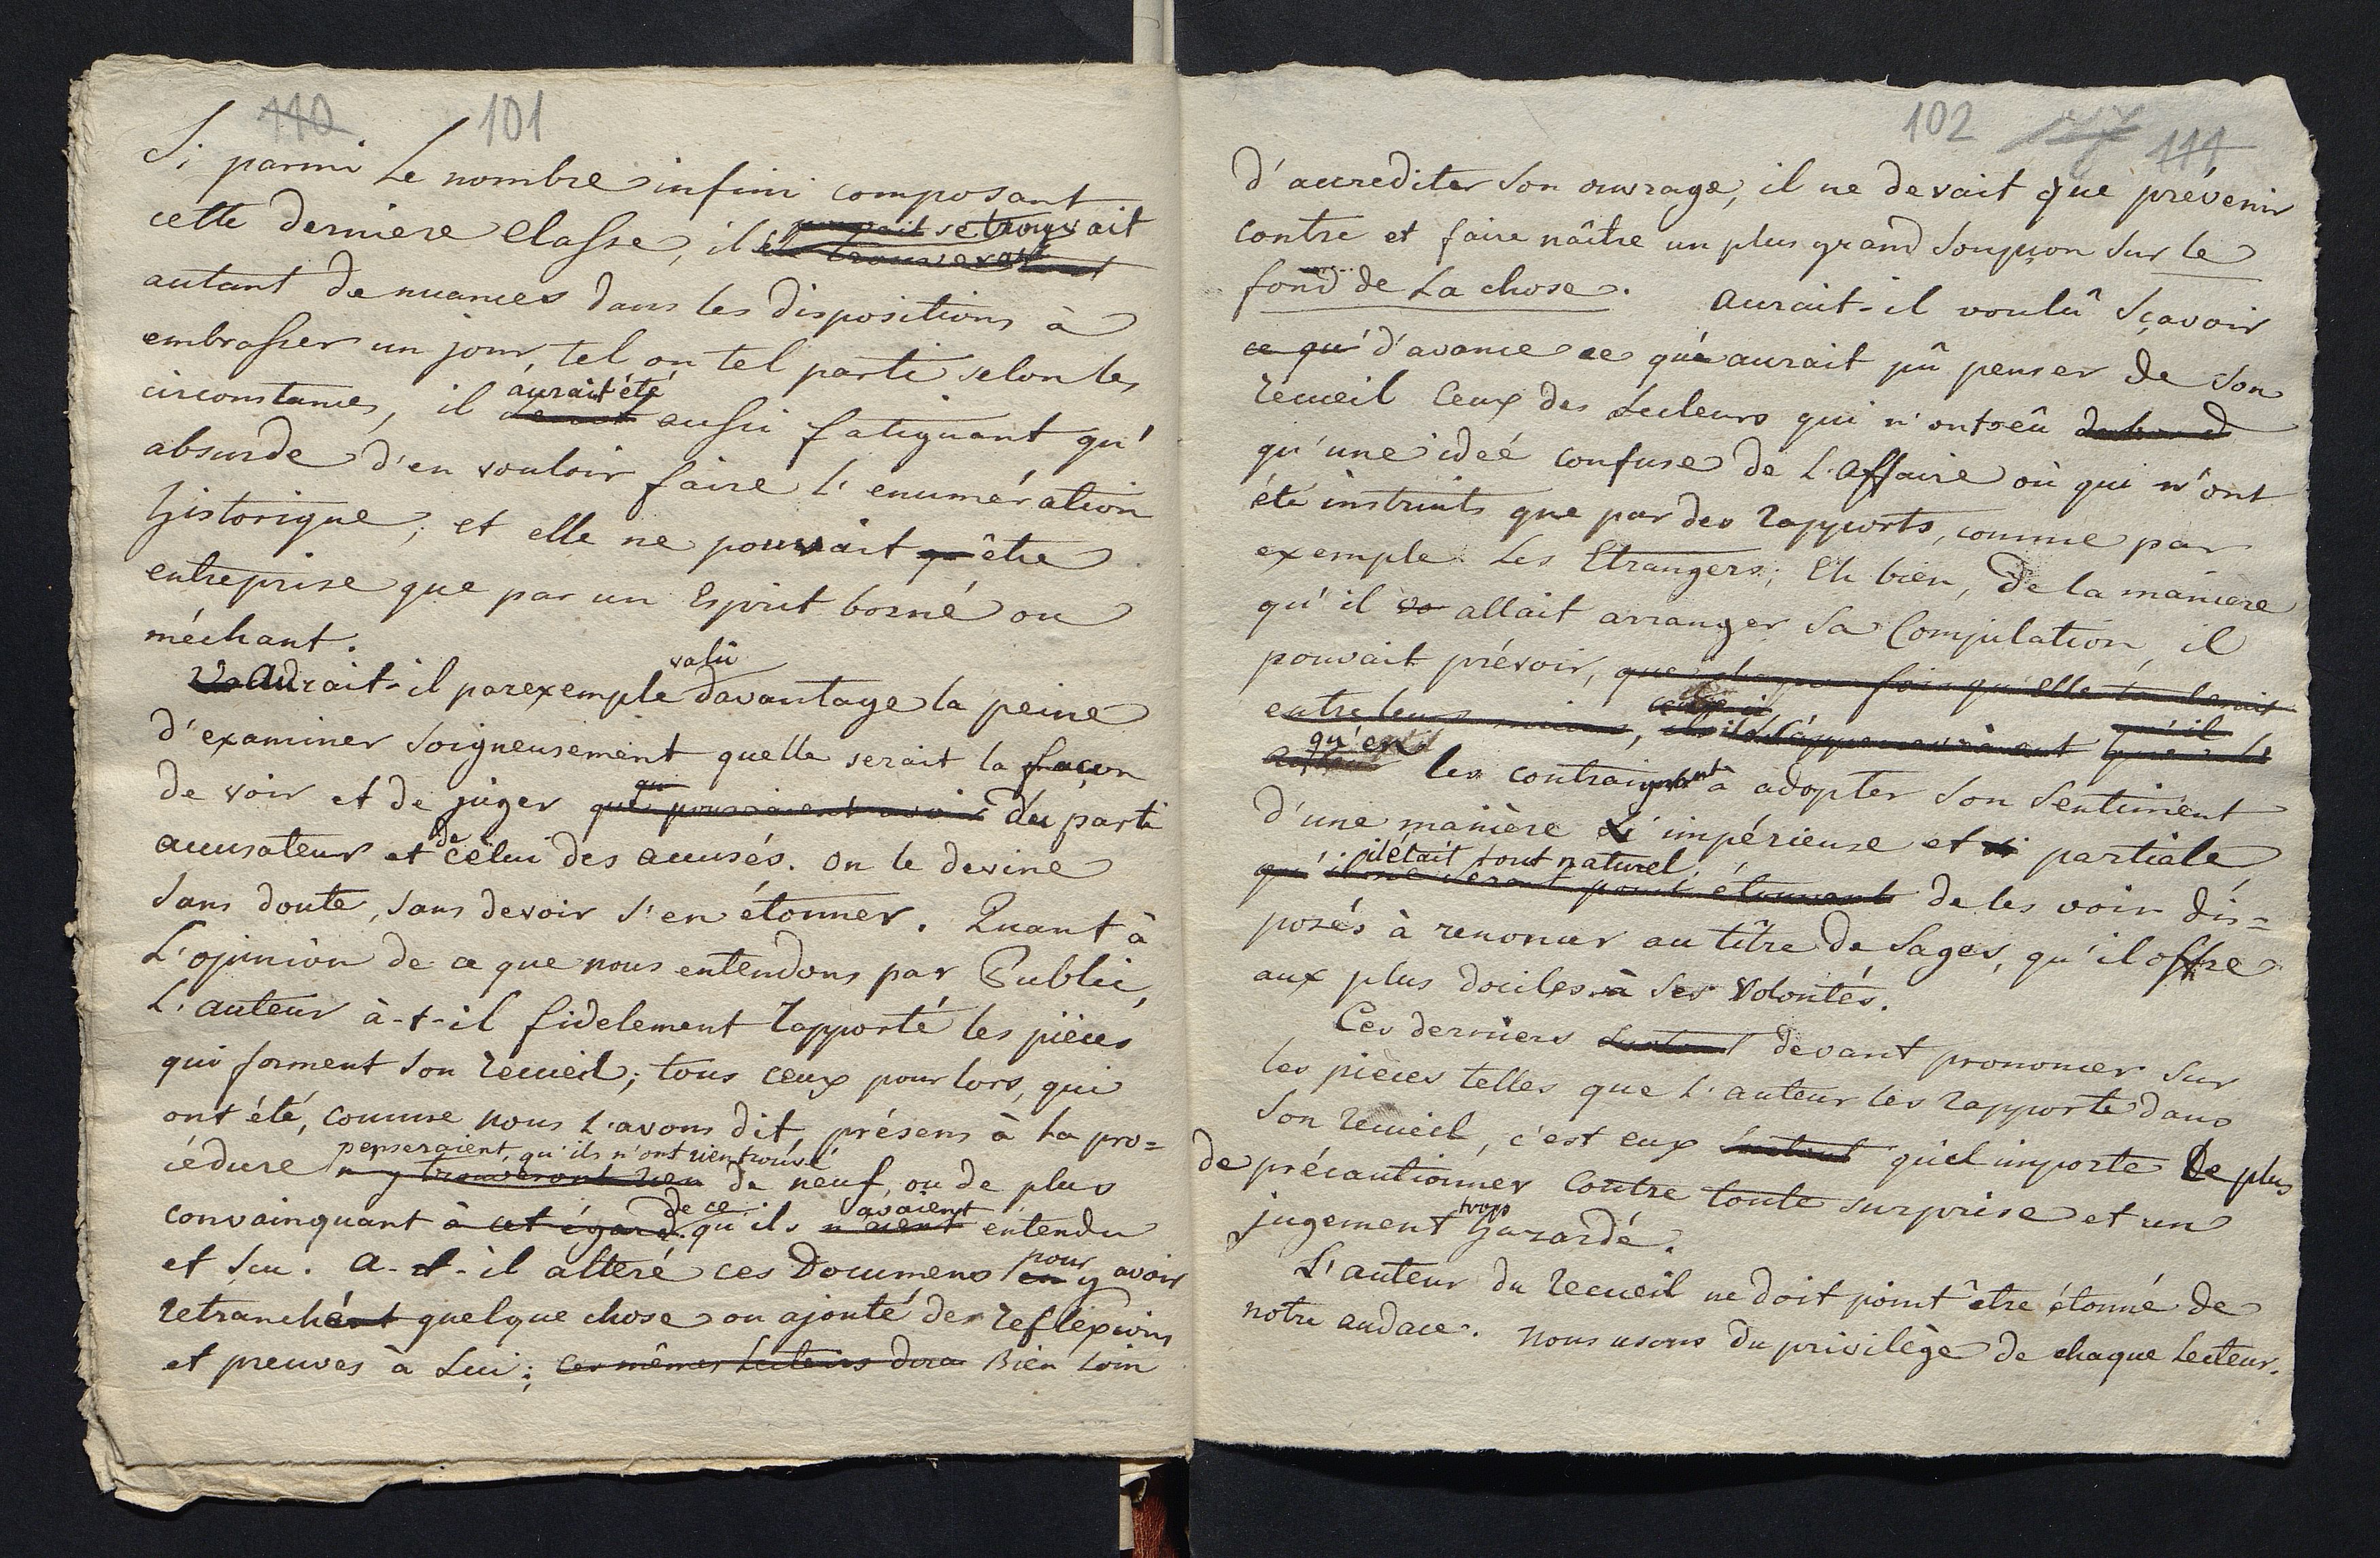 110 101
Si parmi Le nombre infini composant
cette derniere Classe, il se trouvait
autant de nuances dans les dispositions à
embrasser un jour, tel ou tel parti selon les
circonstances, il aurait été aussi fatiguant qu'
absurde d'en vouloir faire l'enumération
historique; et elle ne pouvait être
entreprise que par un Esprit borné ou
méchant.
Aurait-il par exemple valû davantage la peine
d'examiner soigneusement quelle serait la façon
de voir et de juger du parti
accusateur et de celui des accusés. on le devine
sans doute, sans devoir s'en étonner. Quant à
L'opinion de ce que nous entendons par Public,
L'auteur à-t-il fidelement rapporté les pièces
qui forment son recueil; tous ceux pour lors, qui
ont été, comme nous l'avons dit, présens à la pro=
cédure penseraient, qu'ils n'ont rien trouvé
n'y trouveront rien de neuf, ou de plus
convainquant à cet égard de ce qu'ils avaient entendu
et sçu. A-t-il alteré ces Documens pour y avoir
retranché quelque chose ou ajouté des reflexions
et preuves à Lui; ces mêmes Lecteurs Bien loin
102 111
d'accrediter son ouvrage, il ne devait que prévenir
contre et faire naître un plus grand soupçon sur le
fond de La chose. Aurait-il voulû sçavoir
ce qu' d'avance ce qu'aurait pû penser de son
recueil Ceux des Lecteurs qui n'ont eû dabord
qu'une ideé confuse de L'affaire où qui n'ont
été instruits que par des rapports, comme par
exemple Les Etrangers; Eh bien, de la maniere
qu'il allait arranger sa Compilation, il
pouvait prévoir, que chaque fois qu'elle tomberait
entre leurs mains, qu'il
qu'en les contraignant à adopter son sentiment
d'une manière si impérieuse et si partiale,
il était tout naturel
qu' il ne serait point étonnant de les voir dis=
posés à renoncer au tître de Sages, qu'il offre
aux plus dociles à ses Volontés.
Ces derniers surtout devant prononcer sur
les pièces telles que l'auteur les rapporte dans
son recueil, c'est eux surtout qu'il importe Le plus
de précautionner Contre toute surprise et un
jugement trop hazardé.
L'auteur du recueil ne doit point être étonné de
notre audace. Nous usons du privilège de chaque Lecteur.